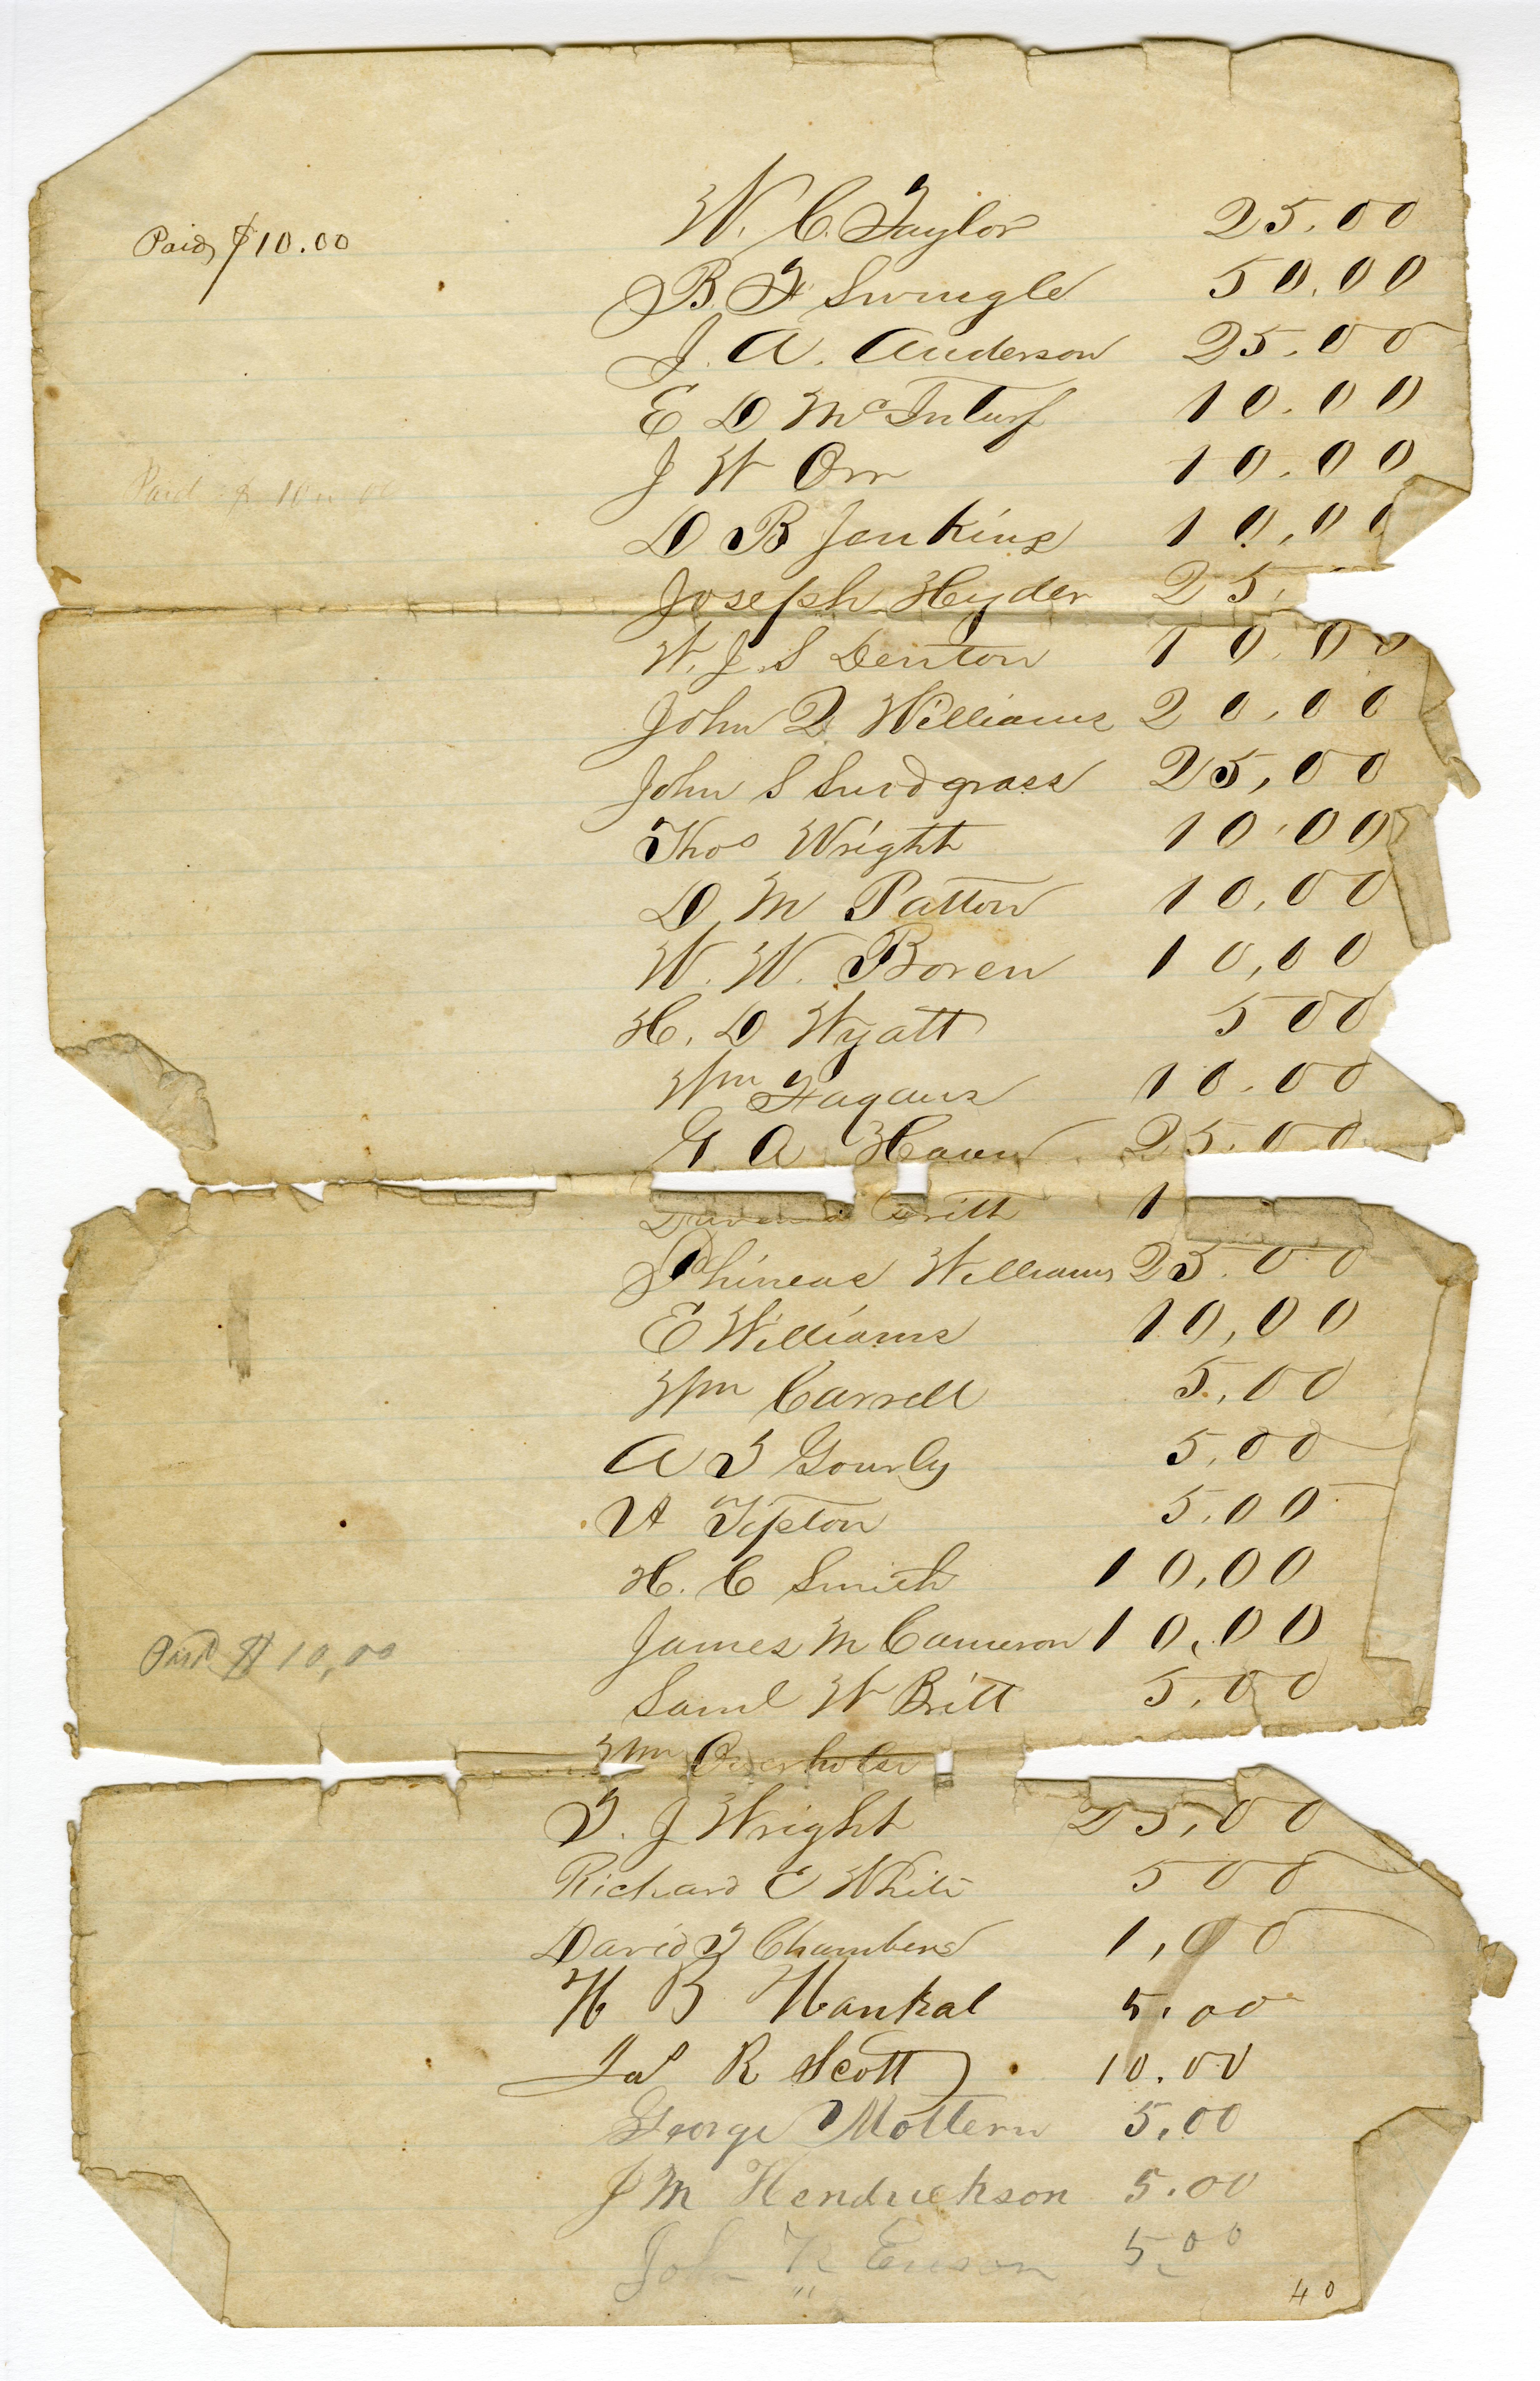 Paid $10.00 W. C. Taylor 25.00
B. F. Swingle 50.00
J. A. Anderson 25.00
E D McInturf 10.00
J W Orr 10.00
Paid $10.00
D B Jenkins 10,00
Joseph Hyder 25.
W. J. S Denton 10.00
John D Williams 20,00
John S Snodgrass 25,00
Thos Wright 10.00
D M Patton 10,00
W. W. Boren 10,00
H. D Wyatt 5 00
Wm Fagans 10.00
G A Haun 25.00
Britt 1
Phineas Williams 25.00
E Williams 10,00
Wm Carrell 5,00
A T Gourly 5,00
A Tipton 5,00
H. C Smith 10,00
Paid $10,00 James M Cameron 10,00
Saml W Britt 5,00
Wm Overholser
T. J Wright 25,00
Richard E White 5 00
David T Chambers 1,00
H B Hankal 5.00
Jas R Scott 10.00
George Mottern 5.00
J M Hendrickson 5.00
John 5.00
40